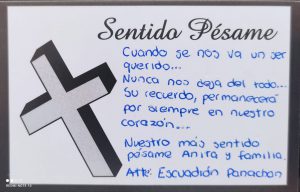 Sentido Pésame
Cuando se nos va un ser
querido...
Nunca nos deja del todo...
Su recuerdo, permanecerá
por siempre en nuestro
corazón...
Nuestro más sentido
pésame Anira y familia.
Atte: Escuadrón Panachan